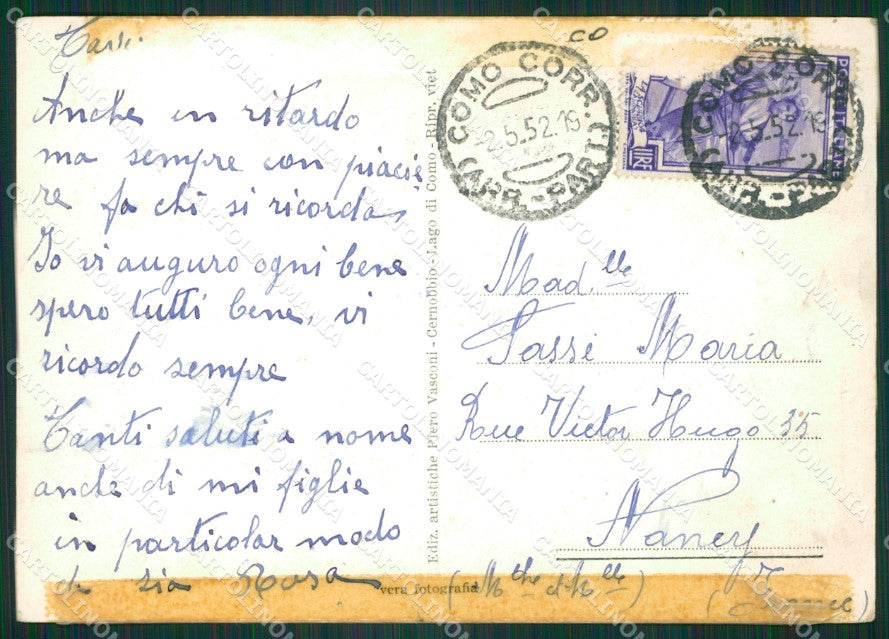 Anche in ritardo
ma sempre con piacie
re fa chi si ricorda,
Io vi auguro ogni bene
spero tutti bene, vi
ricordo sempre
Tanti saluti a nome
anche di mi figlie
in particolar modo
di zia Rosa
Ediz. artistiche Piero Vasconi - Cernobbio - Lago di Como - Ripr. viet
vera fotografia
CO
COMO CORR.
(ARR.-PART.)
-2.5.52.19
COMO CORR.
-2.5.52.19
LIRE
POSTE ITALIANE
Mad.lle
Tassi Maria
Rue Victor Hugo 35
Nancy
(France)
CARTOLINOMANIA